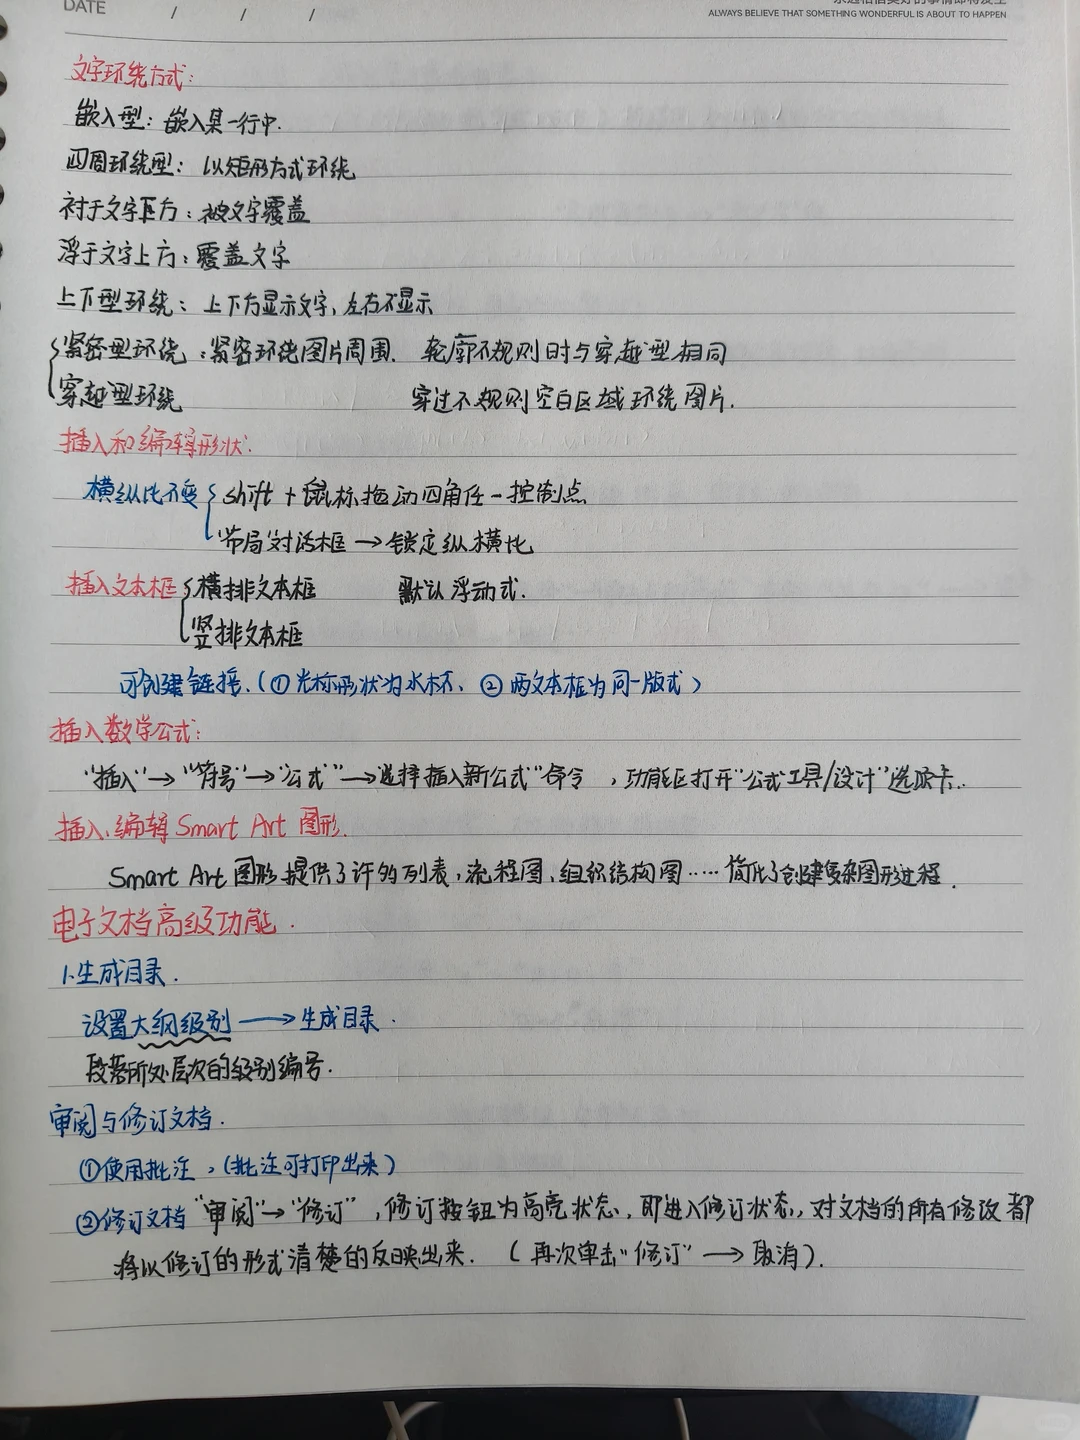 DATE / / /
ALWAYS BELIEVE THAT SOMETHING WONDERFUL IS ABOUT TO HAPPEN
文字环绕方式:
嵌入型: 嵌入某一行中.
四周环绕型: 以矩形方式环绕
衬于文字下方: 被文字覆盖
浮于文字上方: 覆盖文字
上下型环绕: 上下方显示文字, 左右不显示
紧密型环绕: 紧密环绕图片周围. 轮廓不规则时与穿越型相同
穿越型环绕 穿过不规则空白区域环绕图片.
插入和编辑形状.
横纵比不变 shift + 鼠标拖动四角任一控制点
"布局"对话框 → 锁定纵横比
插入文本框 横排文本框 默认浮动式.
竖排文本框
可创建链接. (① 光标形状为水杯、 ② 两文本框为同一版式)
插入数学公式:
"插入"→"符号"→"公式"→选择插入新公式"命令, 功能区打开"公式工具/设计"选项卡..
插入、编辑 Smart Art 图形.
Smart Art 图形提供了许多列表, 流程图, 组织结构图..... 简化了创建复杂图形过程.
电子文档高级功能.
1.生成目录.
设置大纲级别 → 生成目录.
段落所处层次的级别编号.
审阅与修订文档.
①使用批注, (批注可打印出来)
②修订文档 "审阅"→"修订", 修订按钮为高亮状态, 即进入修订状态, 对文档的所有修改都
将以修订的形式清楚的反映出来. (再次单击"修订" → 取消).